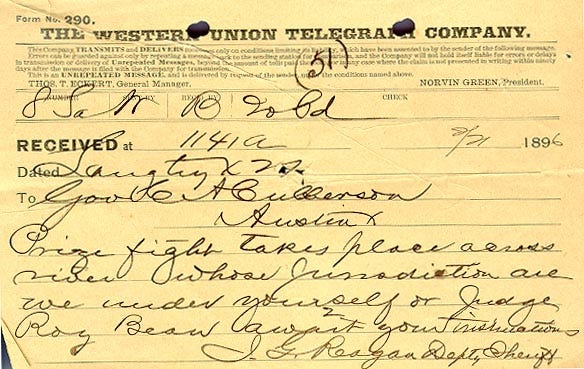 Form No. 290.
THE WESTERN UNION TELEGRAPH COMPANY.
(51)
This Company TRANSMITS and DELIVERS messages only on conditions limiting its liability, which have been assented to by the sender of the following message.
Errors can be guarded against only by repeating a message back to the sending station for comparison, and the Company will not hold itself liable for errors or delays
in transmission or delivery of Unrepeated Messages, beyond the amount of tolls paid thereon, nor in any case where the claim is not presented in writing within ninety
days after the message is filed with the Company for transmission.
This is an UNREPEATED MESSAGE, and is delivered by request of the sender, under the conditions named above.
THOS. T. ECKERT, General Manager. NORVIN GREEN, President.
NUMBER SENT BY REC'D BY CHECK
8 Sa N 20 Pd
RECEIVED at 1141a 2/21 1896
Dated Langtry x 21
To Gov C A Culberson
Austin x
Prize fight takes place across
river whose Jurisdiction are
we under yourself or Judge
Roy Bean await your instructions
J. G. Reagan Depty Sheriff